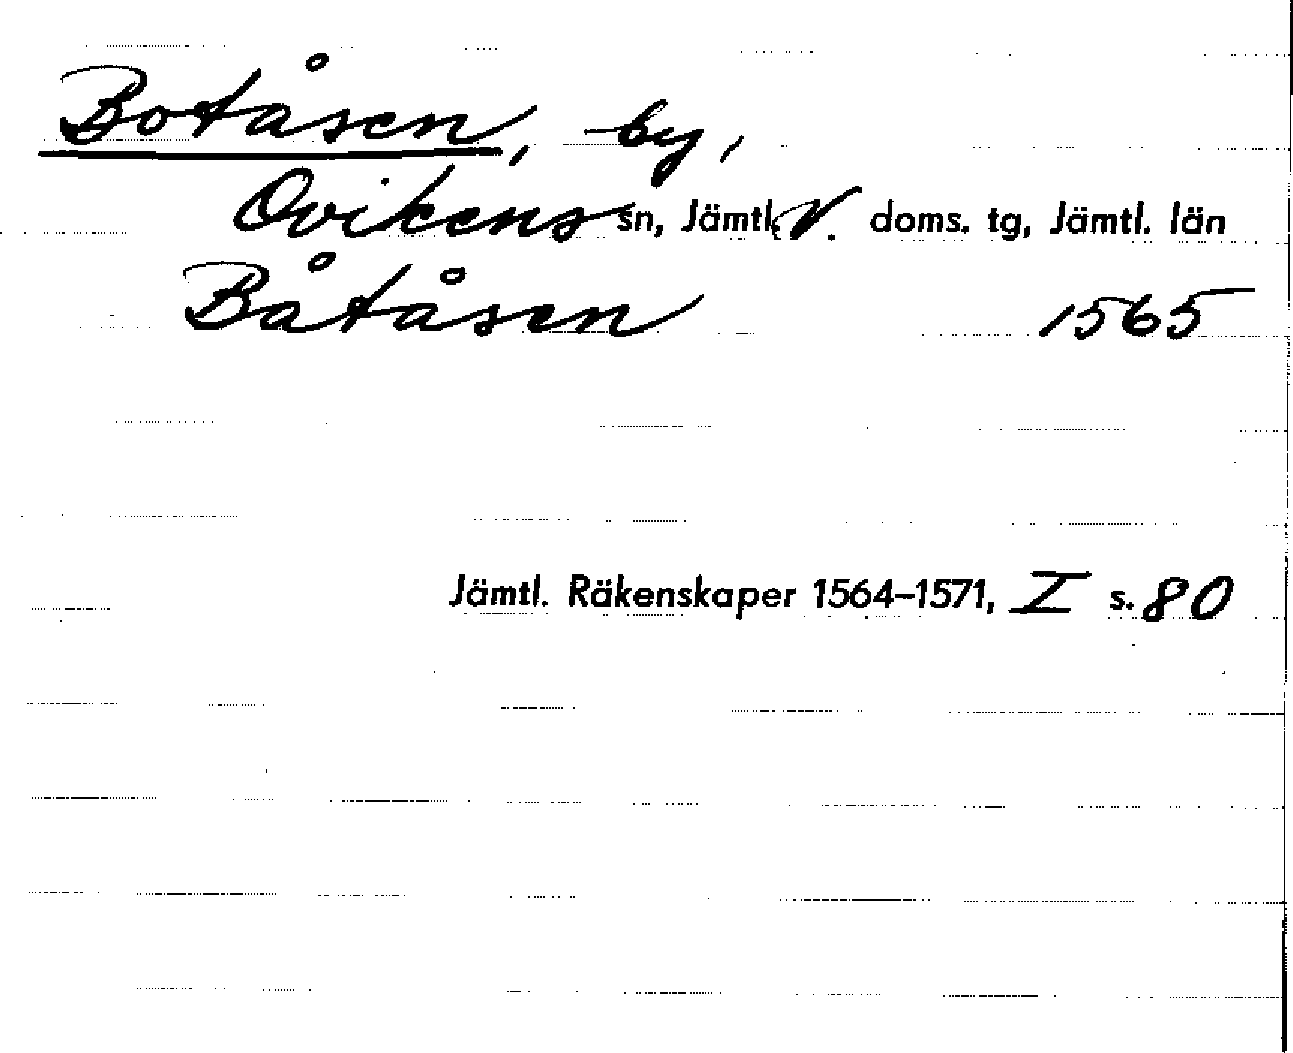 Botåsen, by,
Ovikens sn, Jämtl. V. doms. tg, Jämtl. län
Båtåsen 1565
Jämtl. Räkenskaper 1564–1571, I s. 80